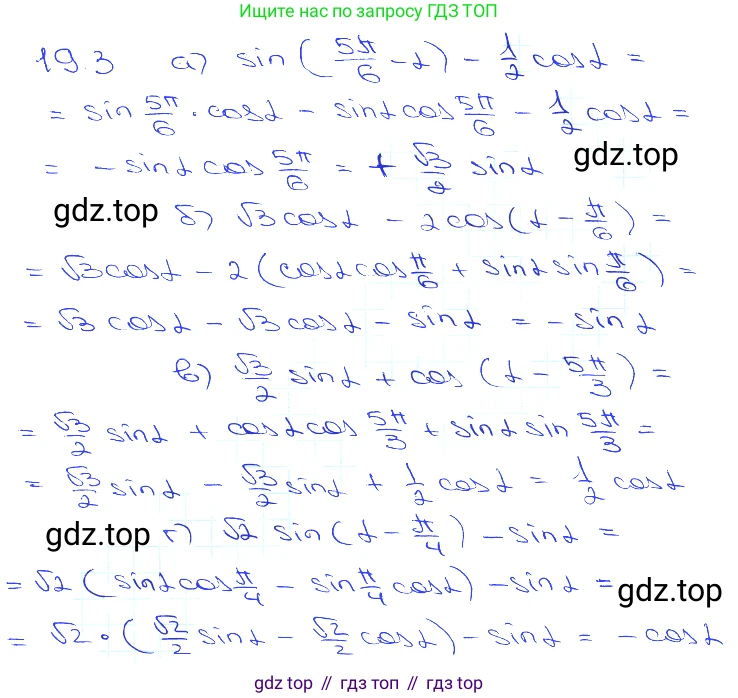 Ищите нас по запросу ГДЗ ТОП
19.3 а) sin(5π/6 - α) - 1/2 cosα =
= sin 5π/6 · cosα - sinα cos 5π/6 - 1/2 cosα =
= - sinα cos 5π/6 = + √3/2 sinα
gdz.top
gdz.top
б) √3 cosα - 2 cos(α - π/6) =
= √3 cosα - 2 (cosα cos π/6 + sinα sin π/6) =
= √3 cosα - √3 cosα - sinα = - sinα
в) √3/2 sinα + cos (α - 5π/3) =
= √3/2 sinα + cosα cos 5π/3 + sinα sin 5π/3 =
= √3/2 sinα - √3/2 sinα + 1/2 cosα = 1/2 cosα
gdz.top
г) √2 sin(α - π/4) - sinα =
= √2 (sinα cos π/4 - sin π/4 cosα) - sinα =
gdz.top
= √2 · (√2/2 sinα - √2/2 cosα) - sinα = - cosα
gdz top // гдз топ // gdz top